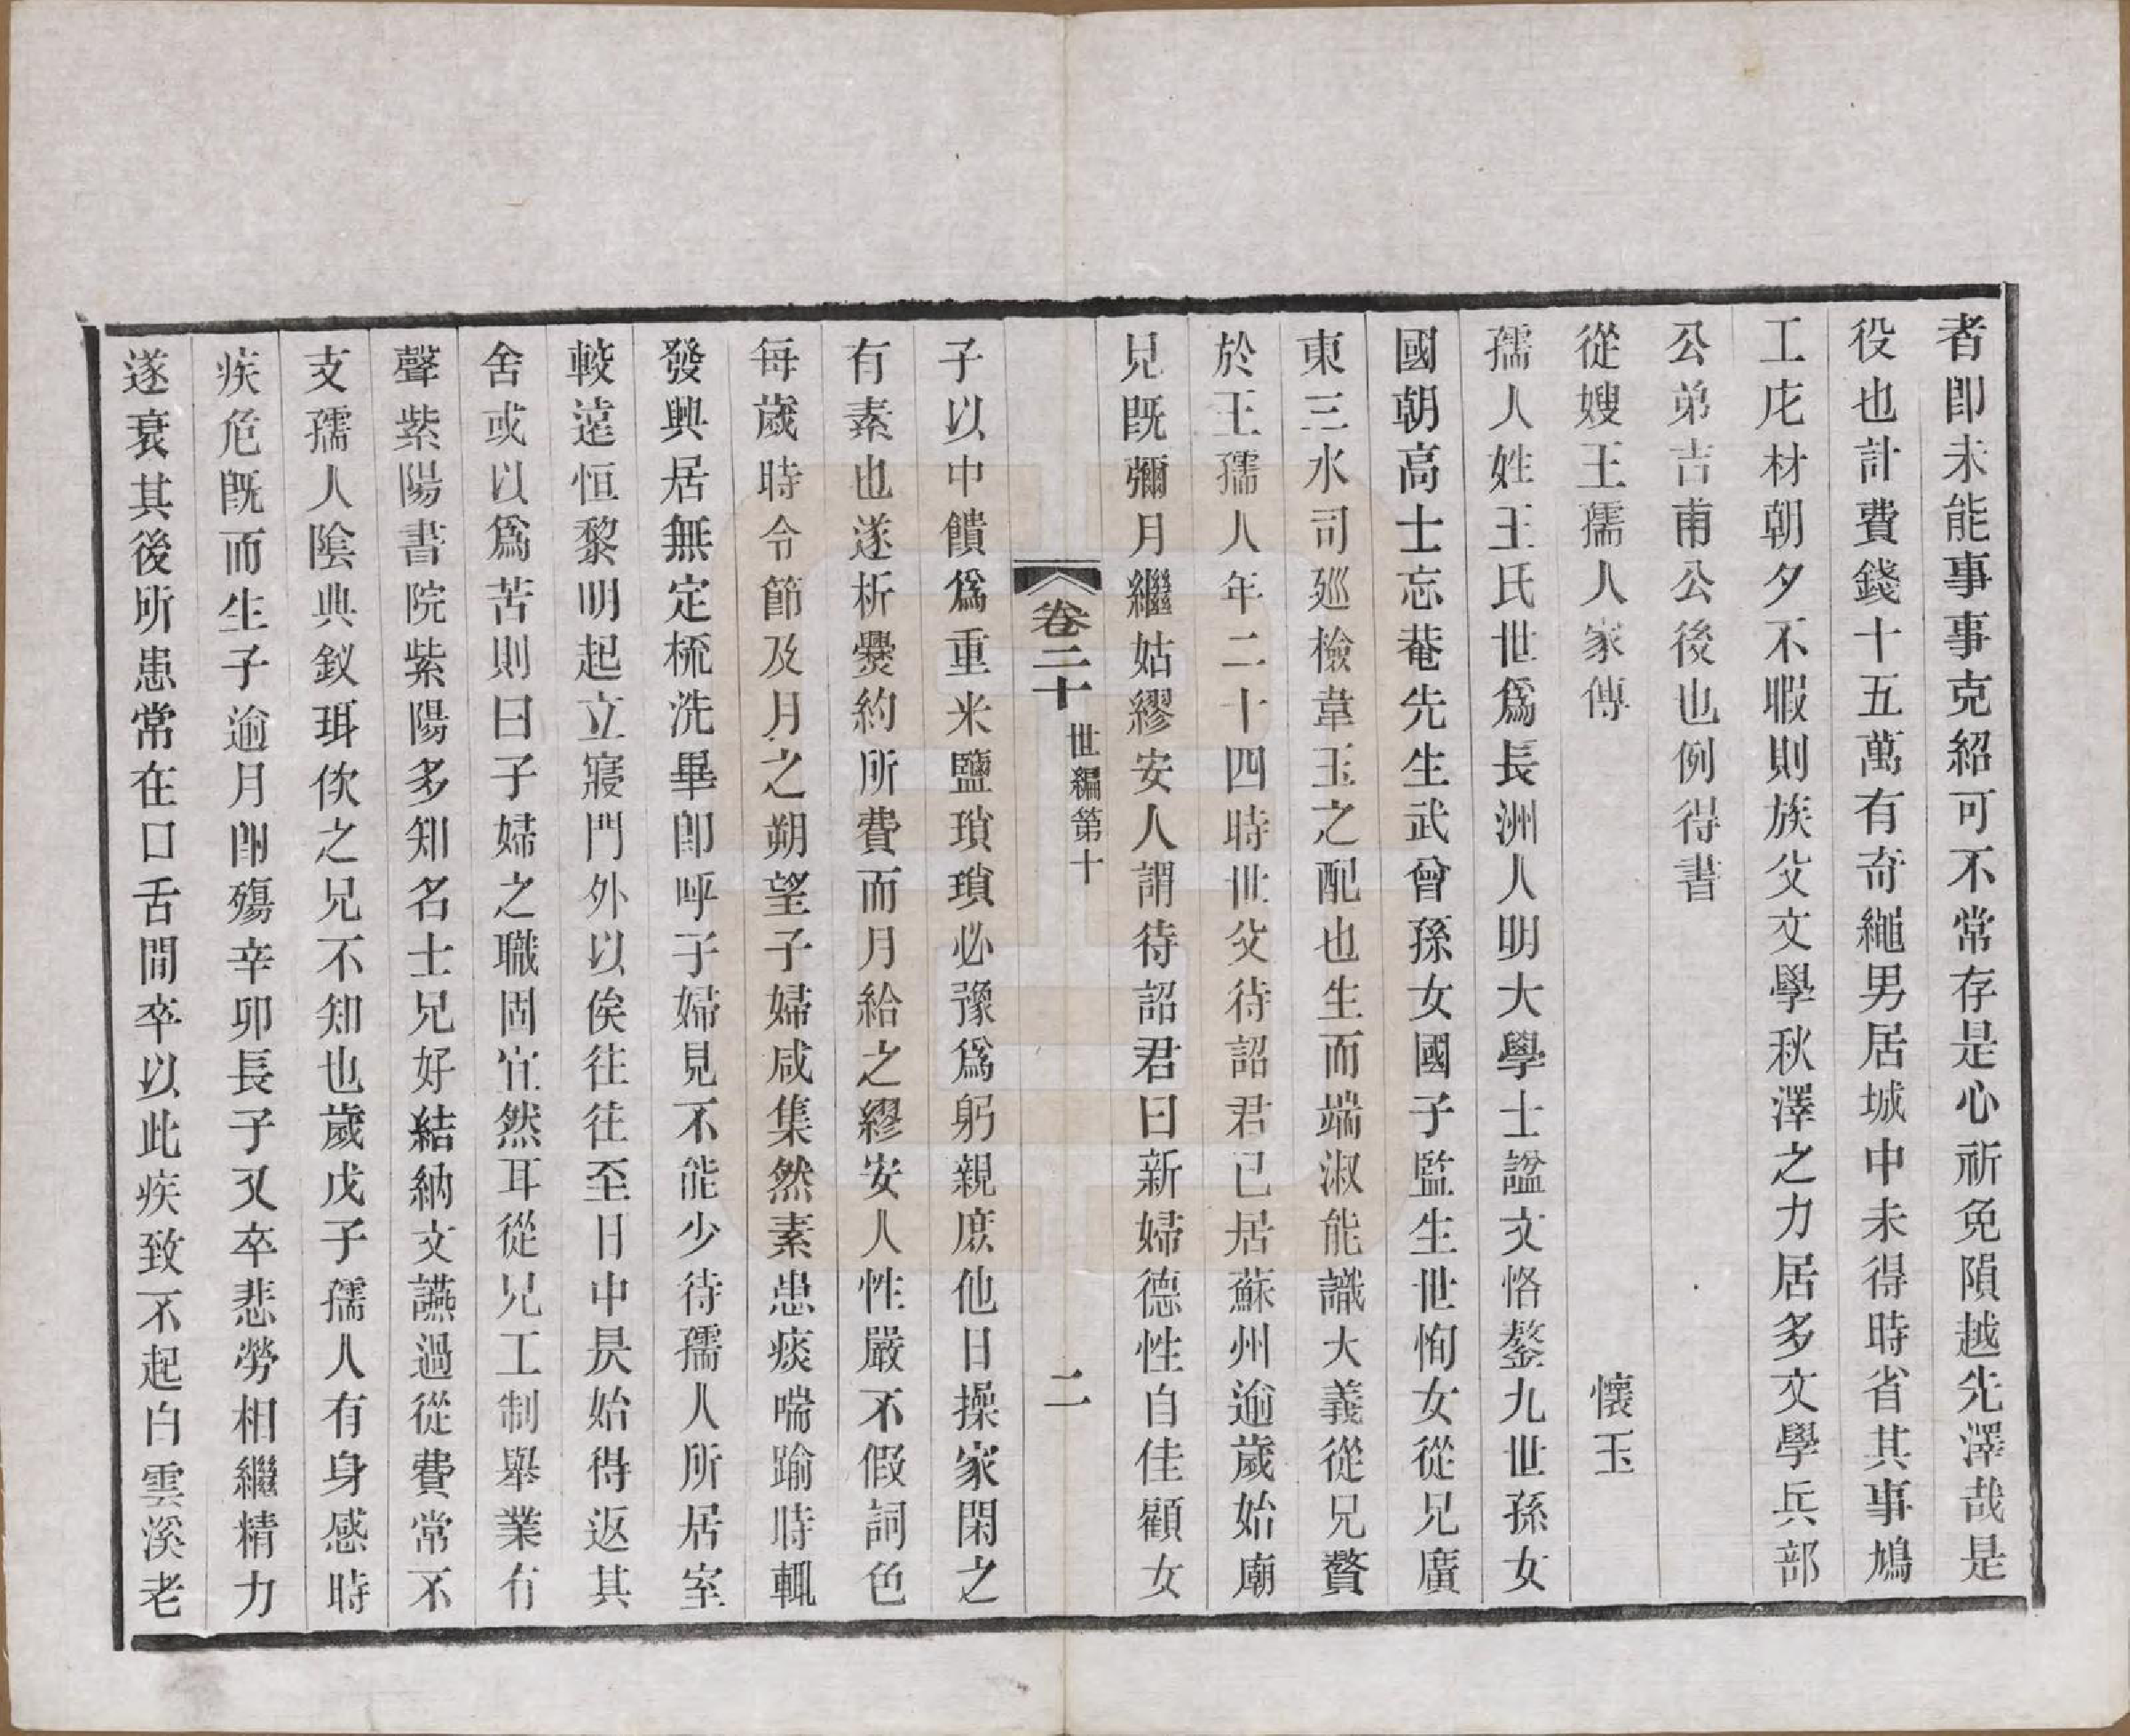 者卽未能事事克紹可不常存是心祈免隕越先澤哉是
役也計費錢十五萬有奇繩男居城中未得時省其事鳩
工庀材朝夕不暇則族父文學秋澤之力居多文學兵部
公弟吉甫公後也例得書
從嫂王孺人家傳
懷玉
孺人姓王氏世爲長洲人明大學士諡文恪鏊九世孫女
國朝高士忘菴先生武曾孫女國子監生世恂女從兄廣
東三水司廵檢韋玉之配也生而端淑能識大義從兄贅
於王孺人年二十四時世父待詔君已居蘇州逾歲始廟
見旣彌月繼姑繆安人謂待詔君曰新婦德性自佳顧女
卷二十
世編第十
二
子以中饋爲重米鹽瑣瑣必豫爲躬親庶他日操家閑之
有素也遂析爨約所費而月給之繆安人性嚴不假詞色
每歲時令節及月之朔望子婦咸集然素患痰喘踰時輒
發興居無定梳洗畢卽呼子婦見不能少待孺人所居室
較遠恒黎明起立寢門外以俟往往至日中昃始得返其
舍或以爲苦則曰子婦之職固宜然耳從兄工制舉業有
聲紫陽書院紫陽多知名士兄好結納文讌過從費常不
支孺人陰典釵珥佽之兄不知也歲戊子孺人有身感時
疾危旣而生子逾月卽殤辛卯長子又卒悲勞相繼精力
遂衰其後所患常在口舌間卒以此疾致不起白雲溪老